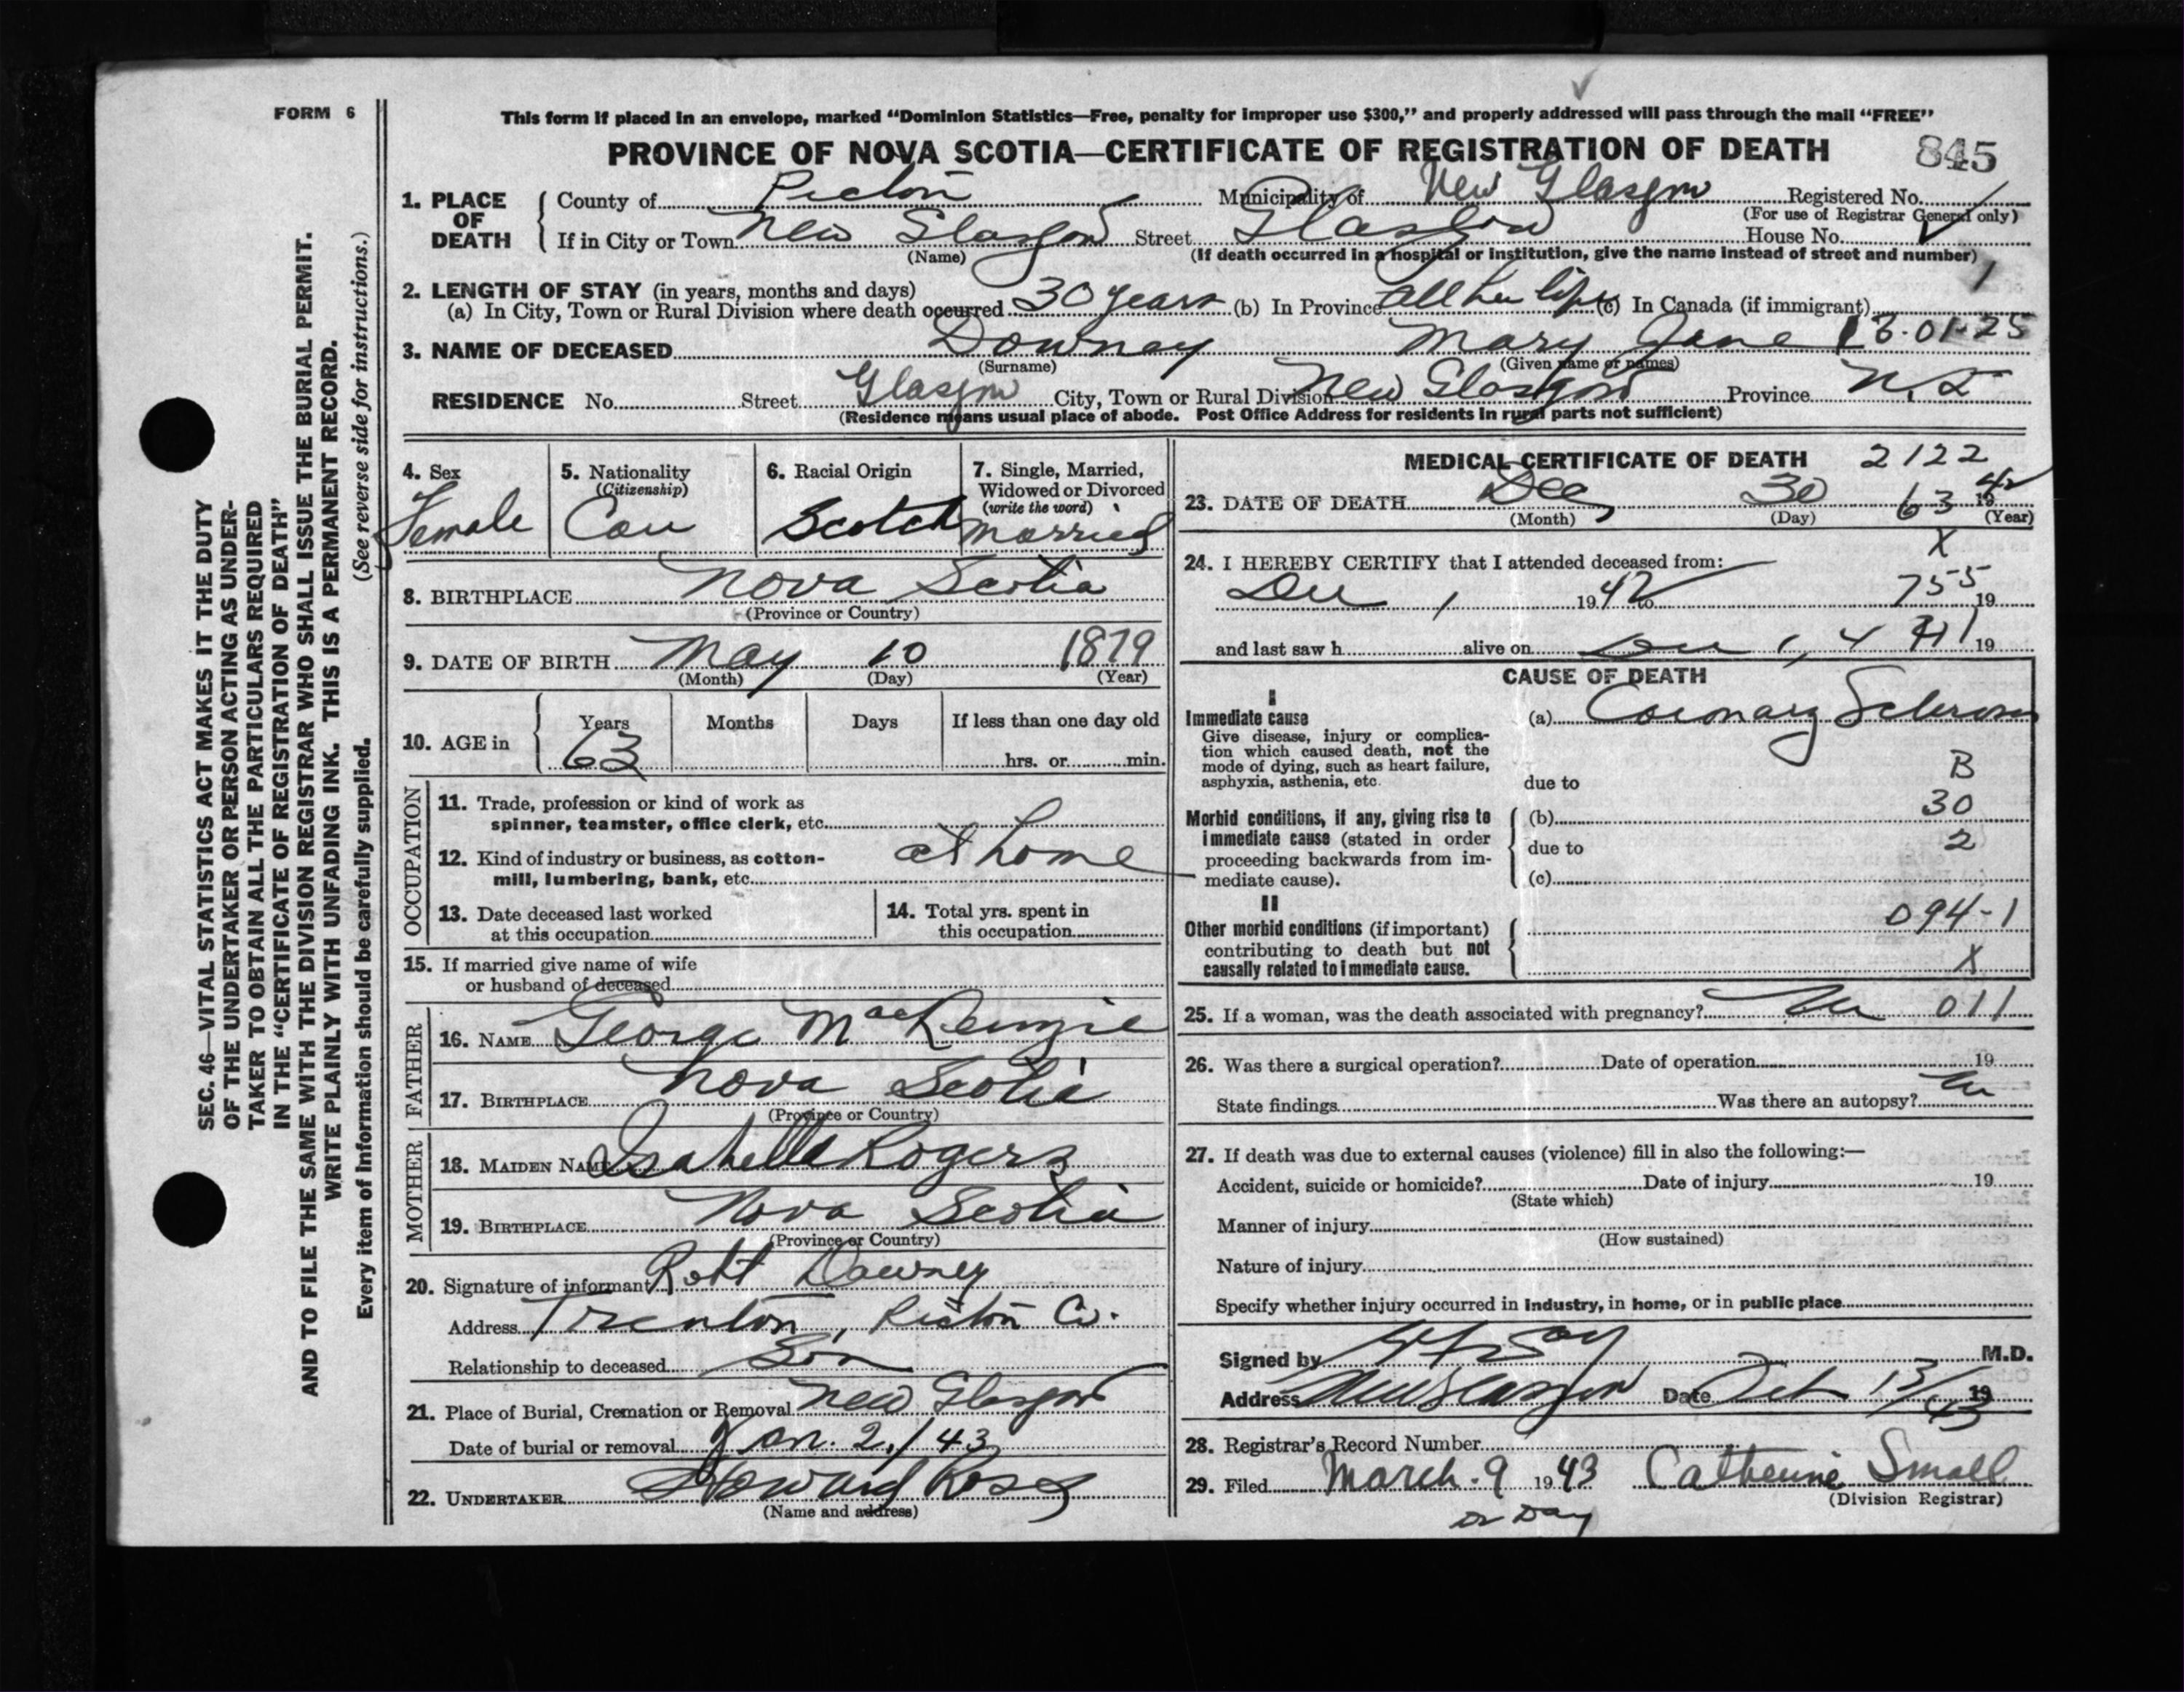 FORM 6
This form if placed in an envelope, marked "Dominion Statistics—Free, penalty for improper use $300," and properly addressed will pass through the mail "FREE"
PROVINCE OF NOVA SCOTIA—CERTIFICATE OF REGISTRATION OF DEATH 845
1. PLACE OF DEATH
County of Pictou Municipality of New Glasgow Registered No.
(For use of Registrar General only)
If in City or Town New Glasgow Street Glasgow House No.
(Name) (If death occurred in a hospital or institution, give the name instead of street and number)
2. LENGTH OF STAY (in years, months and days) 1
(a) In City, Town or Rural Division where death occurred 30 years (b) In Province all her life (c) In Canada (if immigrant)
3. NAME OF DECEASED Downey Mary Jane 13-01-25
(Surname) (Given name or names)
RESIDENCE No. Street Glasgow City, Town or Rural Division New Glasgow Province N.S
(Residence means usual place of abode. Post Office Address for residents in rural parts not sufficient)
4. Sex Female
5. Nationality (Citizenship) Can
6. Racial Origin Scotch
7. Single, Married, Widowed or Divorced (write the word) Married
8. BIRTHPLACE Nova Scotia
(Province or Country)
9. DATE OF BIRTH May 10 1879
(Month) (Day) (Year)
10. AGE in Years 63 Months Days If less than one day old
hrs. or min.
OCCUPATION
11. Trade, profession or kind of work as
spinner, teamster, office clerk, etc.
12. Kind of industry or business, as cotton- at home
mill, lumbering, bank, etc.
13. Date deceased last worked
at this occupation
14. Total yrs. spent in
this occupation
15. If married give name of wife
or husband of deceased
FATHER
16. NAME George MacKenzie
17. BIRTHPLACE Nova Scotia
(Province or Country)
MOTHER
18. MAIDEN NAME Isabella Rogers
19. BIRTHPLACE Nova Scotia
(Province or Country)
20. Signature of informant Robt Downey
Address Trenton, Pictou Co.
Relationship to deceased Son
21. Place of Burial, Cremation or Removal New Glasgow
Date of burial or removal Jan. 2, /43
22. UNDERTAKER Howard Ross
(Name and address)
MEDICAL CERTIFICATE OF DEATH 2122
23. DATE OF DEATH Dec 30 63 1942
(Month) (Day) (Year)
X
24. I HEREBY CERTIFY that I attended deceased from:
Dec 1 1942 to 755 19
and last saw h alive on Dec 1, 4 19
CAUSE OF DEATH
I
Immediate cause (a) Coronary Sclerosis
Give disease, injury or complica-
tion which caused death, not the
mode of dying, such as heart failure,
asphyxia, asthenia, etc.
due to B
Morbid conditions, if any, giving rise to (b) 30
immediate cause (stated in order due to 2
proceeding backwards from im-
mediate cause). (c)
II
Other morbid conditions (if important) 094-1
contributing to death but not
causally related to immediate cause. X
25. If a woman, was the death associated with pregnancy? No 011
26. Was there a surgical operation? Date of operation 19
State findings Was there an autopsy? No
27. If death was due to external causes (violence) fill in also the following:—
Accident, suicide or homicide? Date of injury 19
(State which)
Manner of injury
(How sustained)
Nature of injury
Specify whether injury occurred in industry, in home, or in public place
Signed by Day M.D.
Address New Glasgow Date Feb 13/ 1943
28. Registrar's Record Number
29. Filed March 9 1943 Catherine Small
(Division Registrar)
Dr Day
SEC. 46—VITAL STATISTICS ACT MAKES IT THE DUTY
OF THE UNDERTAKER OR PERSON ACTING AS UNDER-
TAKER TO OBTAIN ALL THE PARTICULARS REQUIRED
IN THE "CERTIFICATE OF REGISTRATION OF DEATH"
AND TO FILE THE SAME WITH THE DIVISION REGISTRAR WHO SHALL ISSUE THE BURIAL PERMIT.
WRITE PLAINLY WITH UNFADING INK. THIS IS A PERMANENT RECORD.
Every item of information should be carefully supplied. (See reverse side for instructions.)